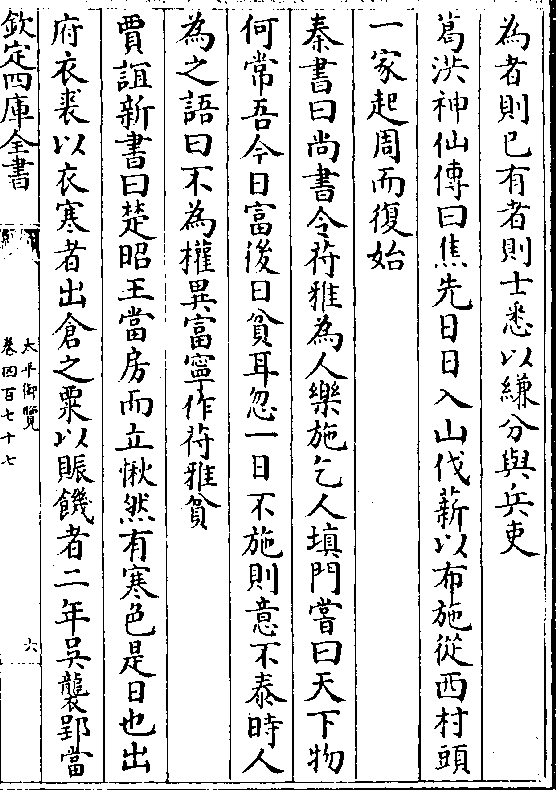 為者則已有者則士悉以縑分與兵吏
葛洪神仙傳曰焦先日日入山伐薪以布施從西村頭
一家起周而復始
秦書曰尚書令苻雅為人樂施乞人填門嘗曰天下物
何常吾今日富後日貧耳忽一日不施則意不泰時人
為之語曰不為權異富寧作苻雅貧
賈誼新書曰楚昭王當房而立愀然有寒色是日也出
府衣裘以衣寒者出倉之粟以賑饑者二年吳襲郢當
欽定四庫全書
太平御覽
卷四百七十七
六